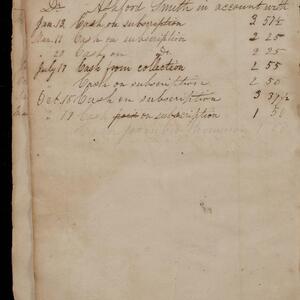 Dr Safford Smith in account with
Jan. 12 Cash on subscription 3 57½
Mar. 11 Cash on subscription 2 25
" 20 Cash, on do. 2 25
July 17 Cash from collection 2 55
Cash on subscription 2 50
Oct. 15 Cash on subscription 3 37½
" 18 Cash paid on subscription 1 50